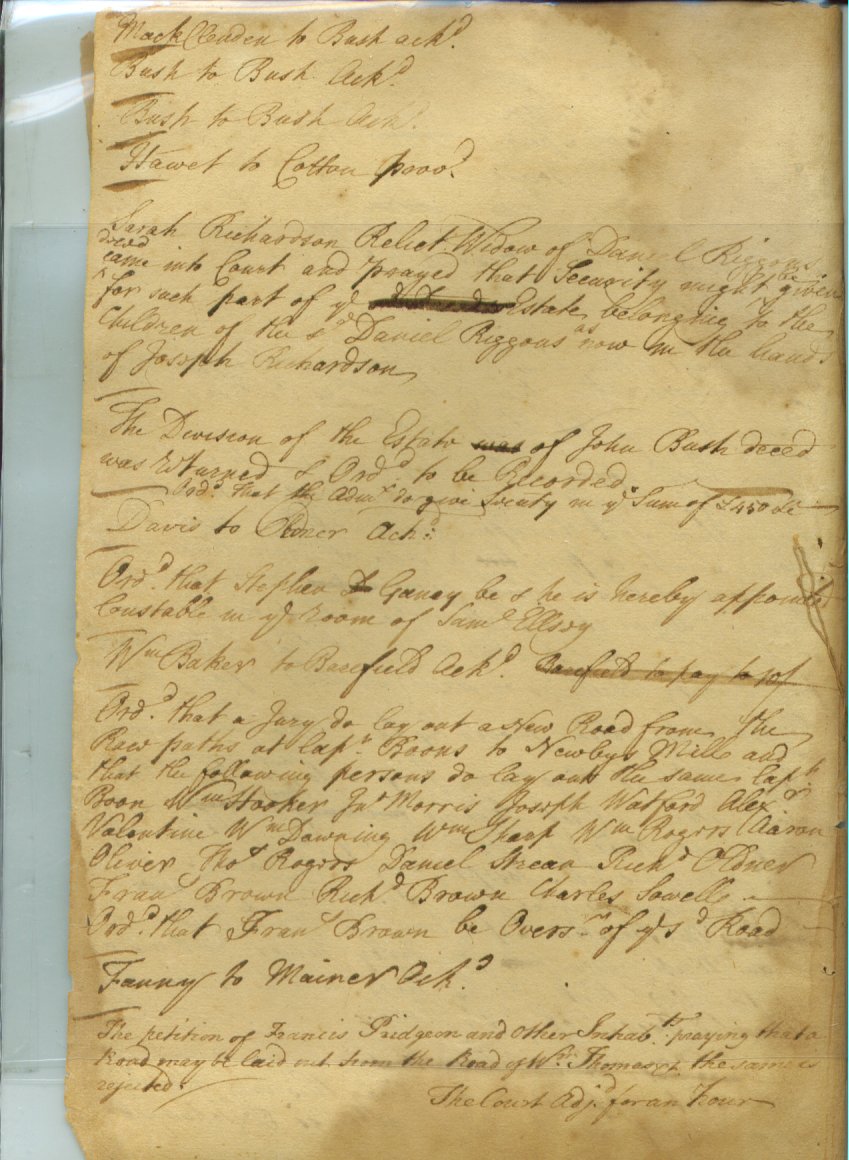 Mackclenden to Bush ackd.
Bush to Bush Ackd.
Bush to Bush Ackd.
Hawet to Cotton proov.d
Sarah Richardson Relict Widow of Daniel Riggons
decd came into Court and prayed that Security might be given
for such part of ye Estate belonging to the
Children of the sd Daniel Riggons as now in the hands
of Joseph Richardson
The Division of the Estate was of John Bush deced
was returned & Ordd. to be Recorded.
Ordd. that the Admr. do give Securty in ye Sum of £450 &c
Davis to Oldner Ackd:
Ordd. that Stephen Ganey be & he is hereby appointed
Constable in ye room of Saml Ellery
Wm Baker to Barefield Ackd. Barefield to pay to
Ordd. that a Jury do lay out a New Road from the
Row paths at Capt. Boons to Newbys Mill and
that the following persons do lay out the same Capt.
Boon Wm Hooker Jno Morris Joseph Watford Alexr.
Valentine Wm Downing Wm Sharp Wm Rogers Aaron
Oliver Thos Rogers Daniel Richd Oldner
Frans Brown Richd. Brown Charles Sowell
Ordd. that Frans Brown be Oversr. of ye sd Road
Fanny to Mainer Ackd.
The petition of Francis Pridgeon and other Inhabts. praying that a
Road may be laid out from the Road of Wm. Thomas the same is
rejected
The Court Adjd. for an hour